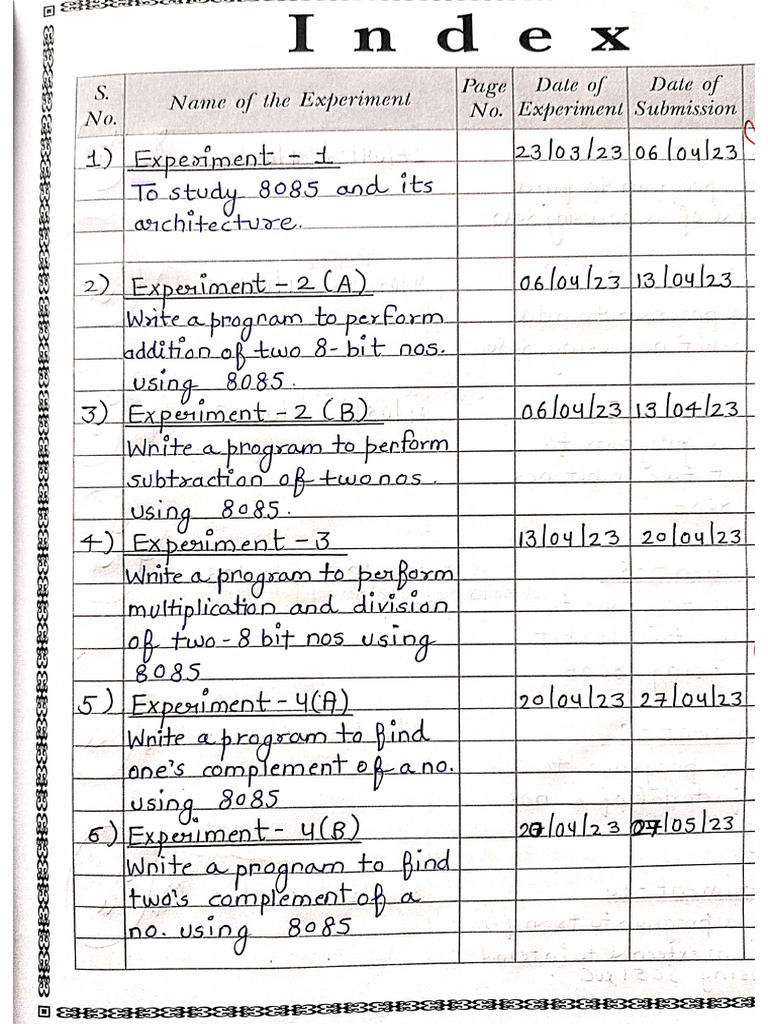 Index
S. No. Name of the Experiment Page No. Date of Experiment Date of Submission
1) Experiment - 1 23/03/23 06/04/23
To study 8085 and its
architecture.
2) Experiment - 2 (A) 06/04/23 13/04/23
Write a program to perform
addition of two 8-bit nos.
using 8085.
3) Experiment - 2 (B) 06/04/23 13/04/23
Write a program to perform
subtraction of two nos.
using 8085.
4) Experiment - 3 13/04/23 20/04/23
Write a program to perform
multiplication and division
of two - 8 bit nos using
8085
5) Experiment - 4(A) 20/04/23 27/04/23
Write a program to find
one's complement of a no.
using 8085
6) Experiment - 4(B) /04/23 /05/23
Write a program to find
two's complement of a
no. using 8085